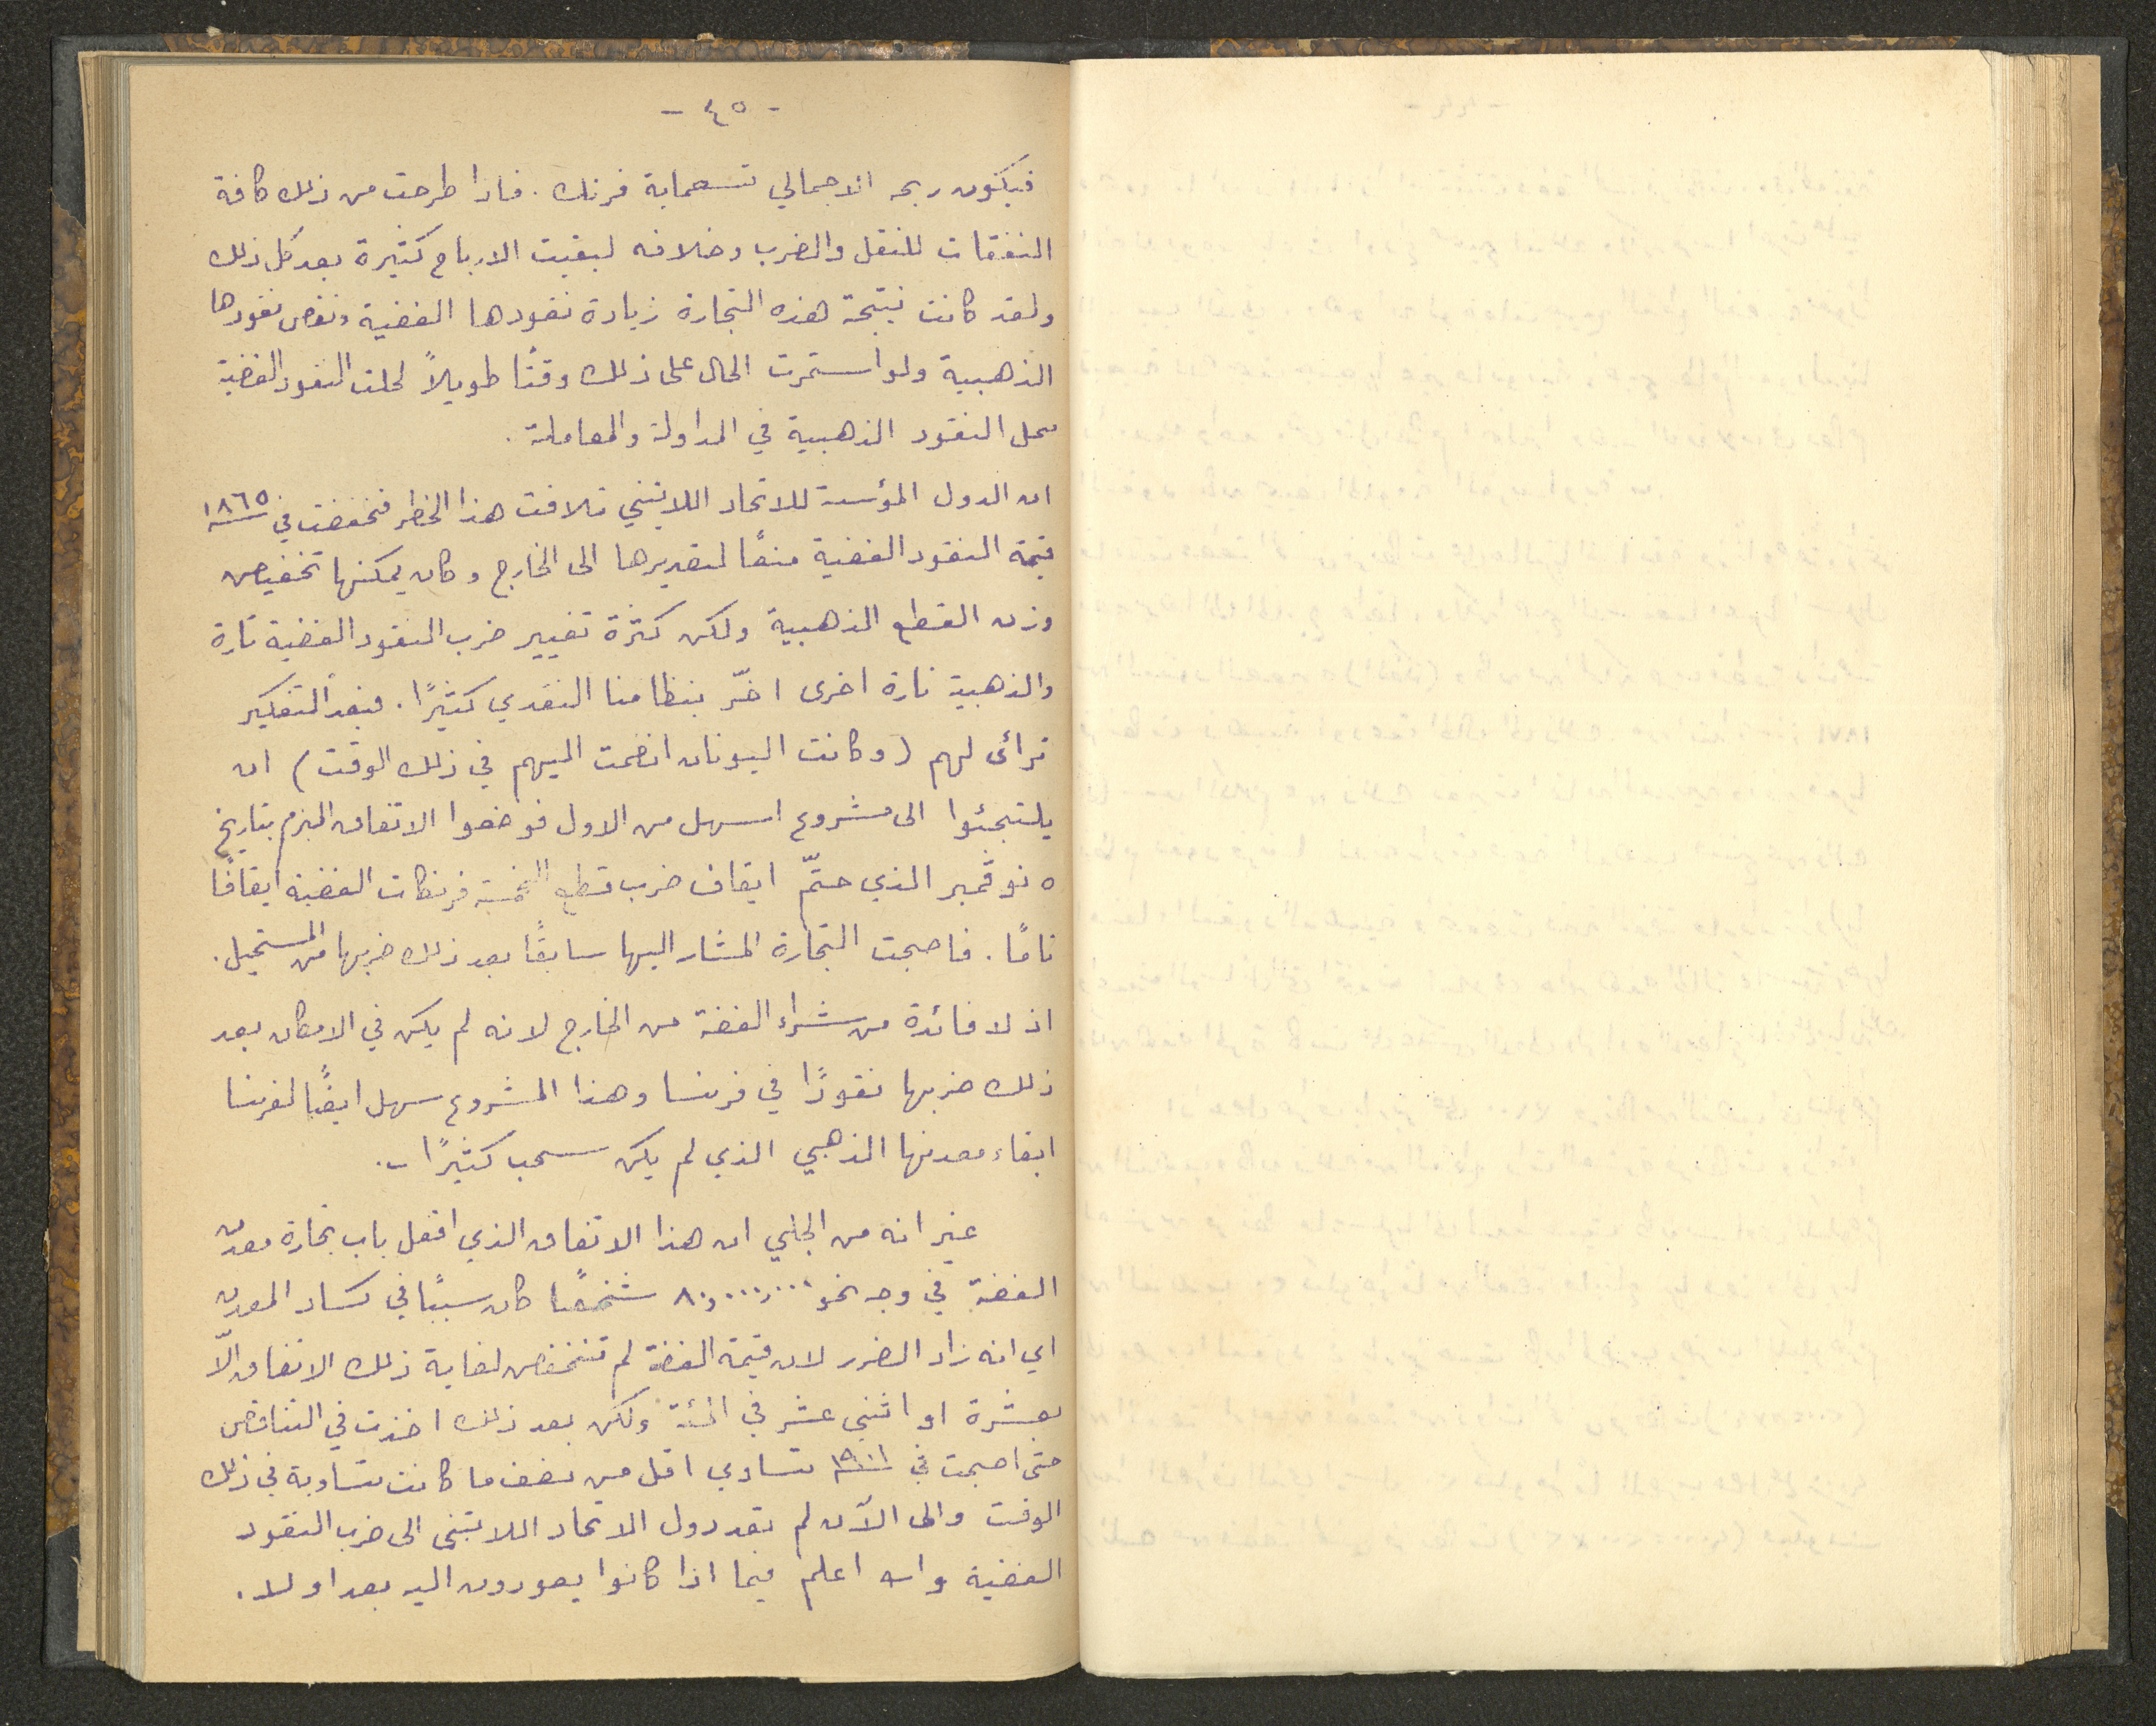 - ٤٥ -
فيكون ربحه الاجمالي تسعماية فرنك. فاذا طرحت من ذلك كافة
النفقات للنقل والضرب وخلافه لبقيت الارباح كثيرة بعد كل ذلك
ولقد كانت نتيجة هذه التجارة زيادة نقودها الفضية ونقص نقودها
الذهبية ولو استمرت الحال على ذلك وقتًا طويلاً لحلت النقود الفضية
محل النقود الذهبية في المداولة والمعاملة.
ان الدول المؤسسة للاتحاد اللاتيني تلافت هذا الخطر فخفضت في ١٨٦٥
قيمة النقود الفضية منعًا لتصديرها الى الخارج وكان يمكنها تخفيض
وزن القطع الذهبية ولكن كثرة تغيير ضرب النقود الفضية تارة
والذهبية تارة اخرى اضرّ بنظامنا النقدي كثيرًا. فبعد التفكير
ترائى لهم (وكانت اليونان انضمت اليهم في ذلك الوقت) ان
يلتجئوا الى مشروع اسهل من الاول فوضعوا الاتفاق المبرم بتاريخ
٥ نوڤمبر الذي حتّم ايقاف ضرب قطع الخمسة فرنكات الفضية ايقافًا
تامًا. فاصبحت التجارة المشار اليها سابقًا بعد ذلك ضربها من المستحيل.
اذ لا فائدة من شراء الفضة من الخارج لانه لم يكن في الامكان بعد
ذلك ضربها نقودًا في فرنسا وهذا المشروع سهل ايضًا لفرنسا
ابقاء معدنها الذهبي الذي لم يكن سحب كثيرًا.
غير انه من الجلي ان هذا الاتفاق الذي اقفل باب تجارة معدن
الفضة في وجه نحو ٨٠,٠٠٠,٠٠٠ شخصًا كان سببًا في كساد المعدن
اي انه زاد الضرر لان قيمة الفضة لم تنخفض لغاية ذلك الاتفاق الّا
بعشرة او اثني عشر في المئة ولكن بعد ذلك اخذت في التناقص
حتى اصبحت في ١٩٠١ تساوي اقل من نصف ما كانت تساويه في ذلك
الوقت والى الآن لم تعد دول الاتحاد اللاتيني الى ضرب النقود
الفضية والله اعلم فيما اذا كانوا يعودون اليه بعد او لا.